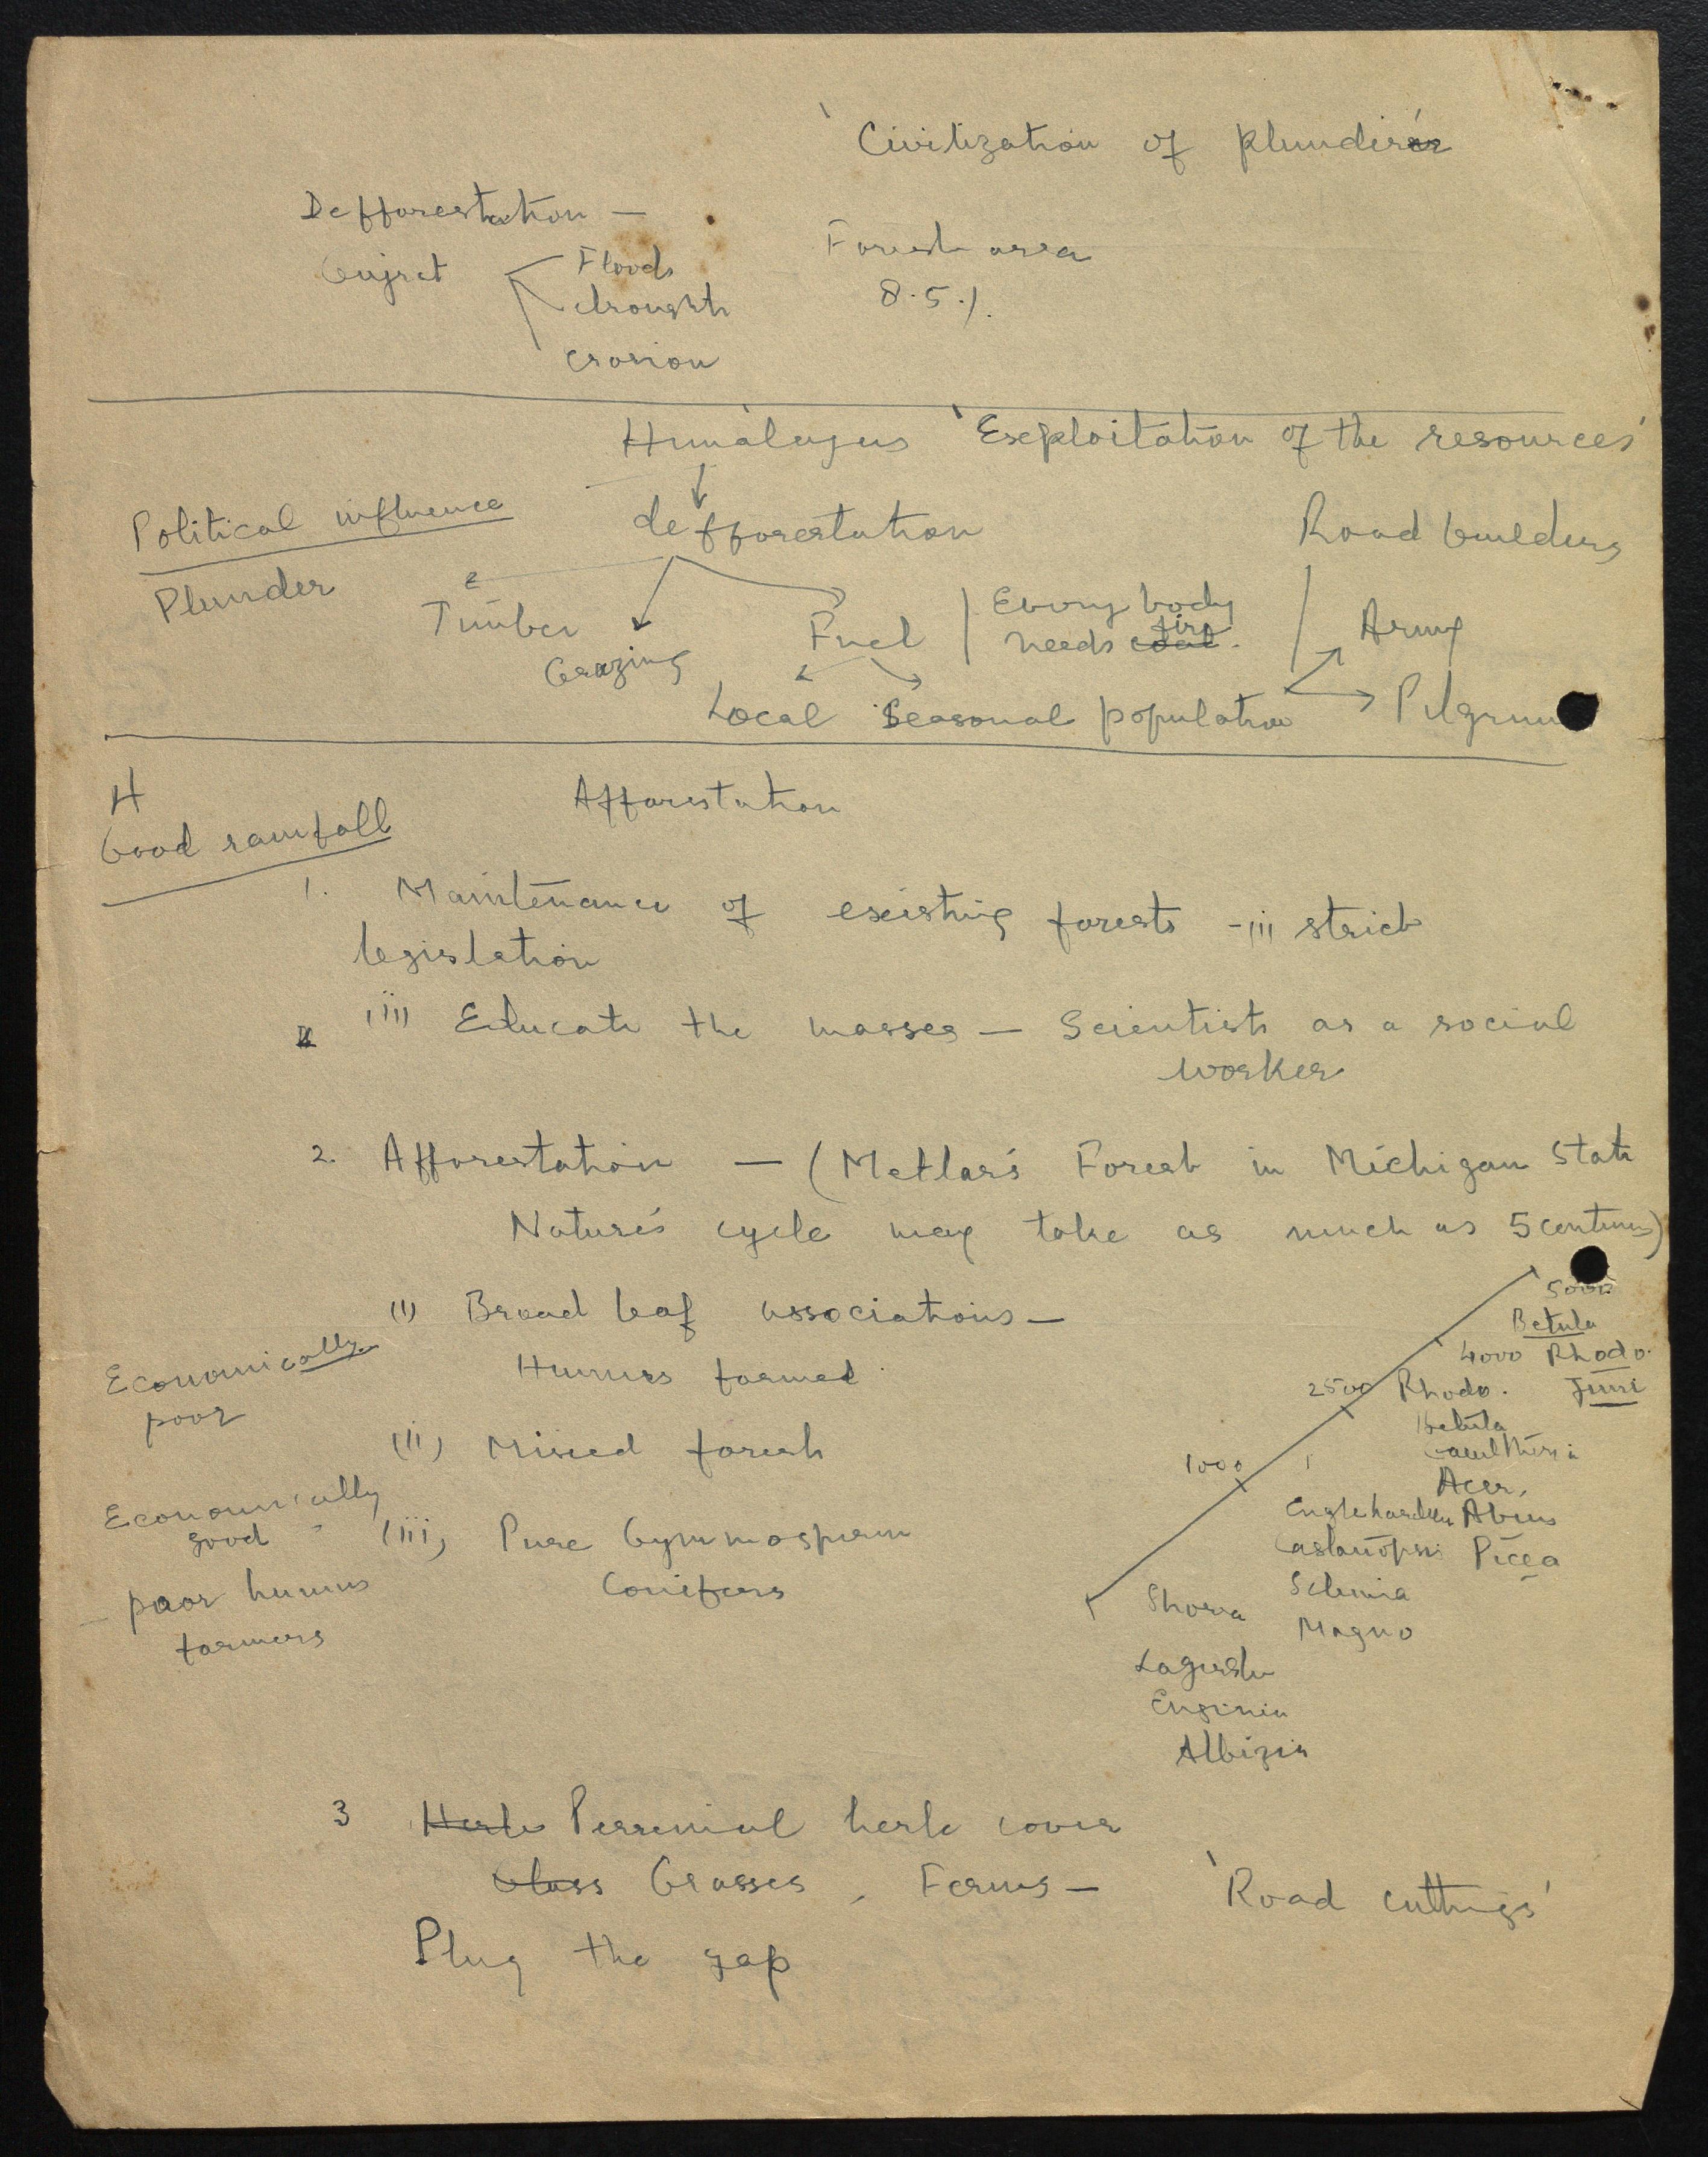 'Civilization of plunder
Defforestation —
Gujrat
Floods
drought
erosion
Forest area
8.5 %.
Himalayas 'Exploitation of the resources'
Political influence
Plunder
defforestation
Road builders
Timber
Grazing
Fuel
Every body
needs coal fire.
Army
Local Seasonal population
Pilgrim
H
Good rainfall
Afforestation
1. Maintenance of existing forests - (i) strict
legislation
(ii) Educate the masses — Scientists as a social
worker
2. Afforestation — ( Metlar's Forest in Michigan State
Nature's cycle may take as much as 5 centuries)
(i) Broad leaf associations —
Humus formed
Economically
poor
(ii) Mixed forest
Economically
good
(iii) Pure Gymnosperm
Conifers
- poor humus
formers
5000
Betula
4000 Rhodo.
Juni
2500 Rhodo.
Betula
Gaultheria
Acer,
Abies
Picea
1000
Englehardtia
Castanopsis
Schima
Magno
Shorea
Lagerstr
Eugenia
Albizia
3 Herbs Perrenial herb cover
Glass Grasses, Ferns — 'Road cuttings'
Plug the gap